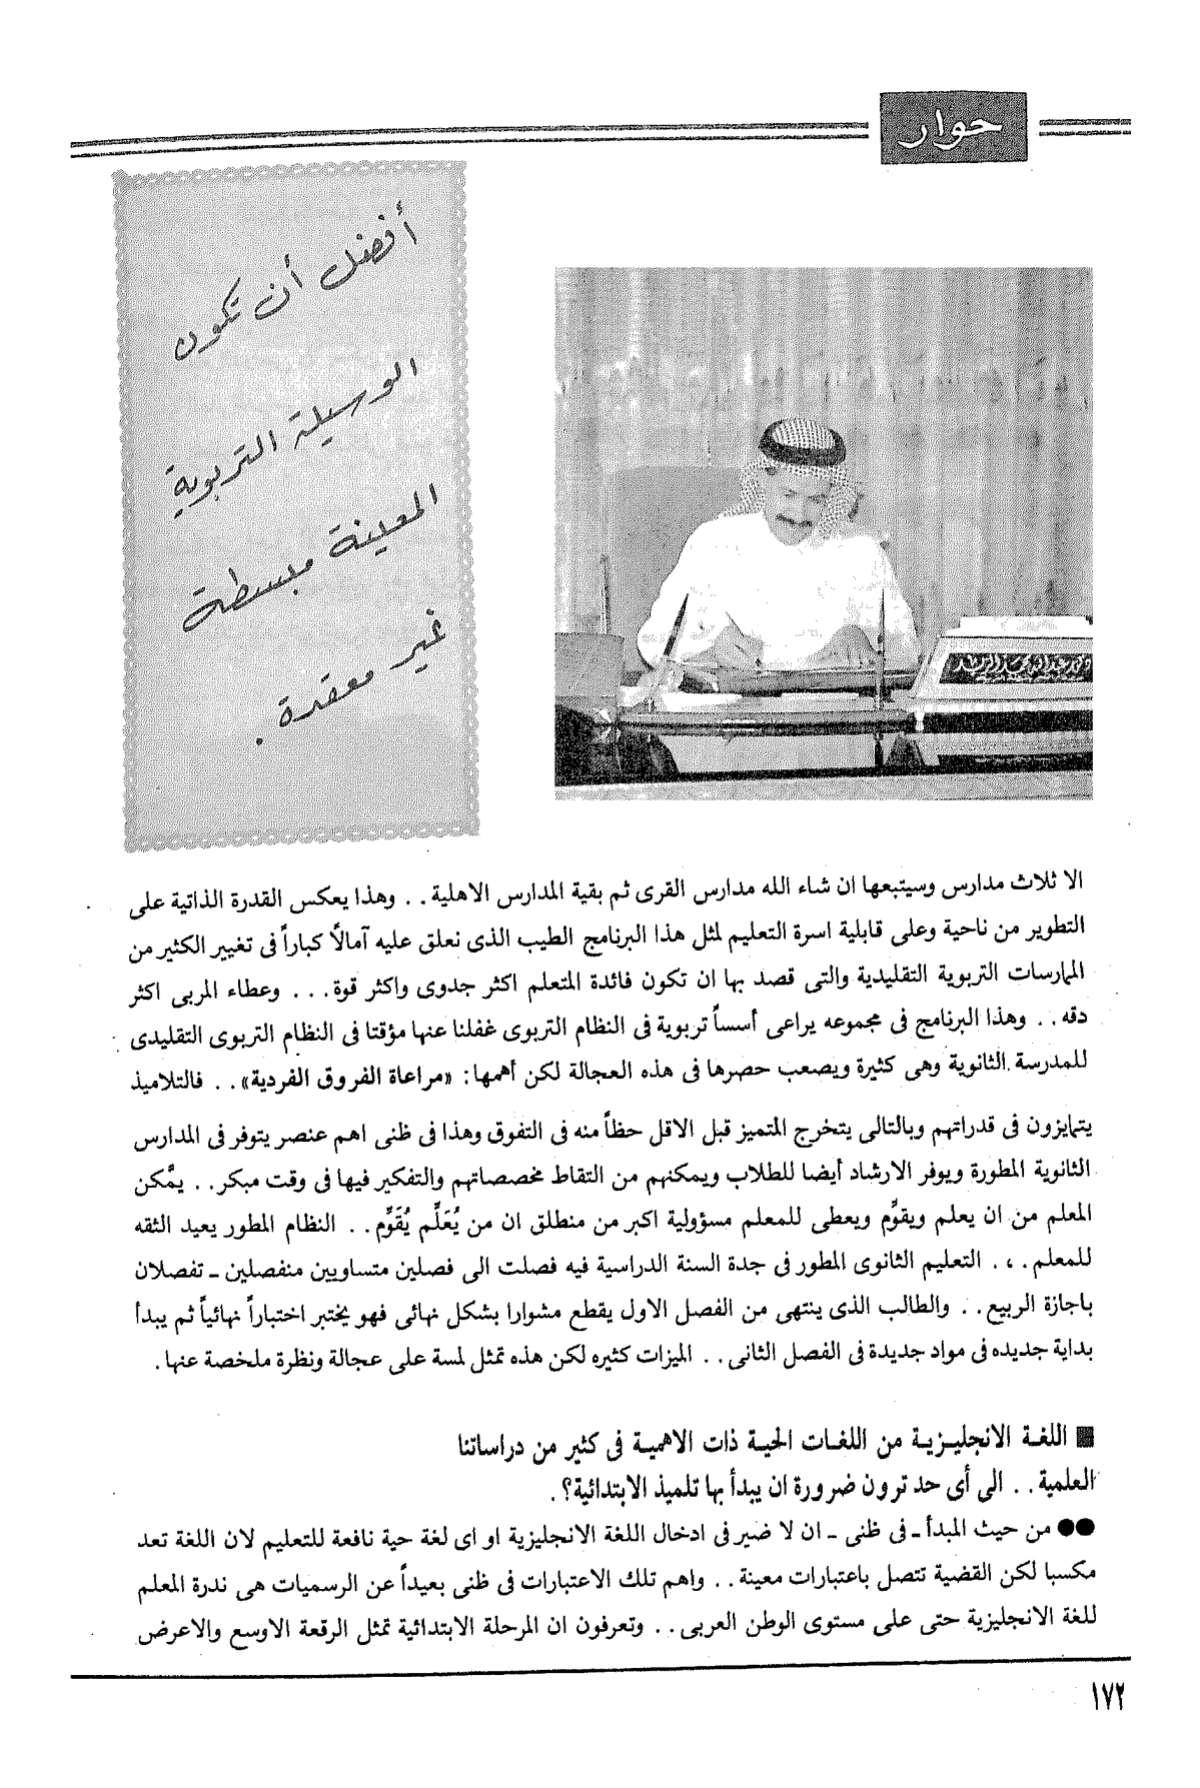 حوار
أفضل أن تكون
الوسيلة التربوية
المعينة مبسطة
غير معقدة .
الا ثلاث مدارس وسيتبعها ان شاء الله مدارس القرى ثم بقية المدارس الاهلية . . وهذا يعكس القدرة الذاتية على
التطوير من ناحية وعلى قابلية اسرة التعليم لمثل هذا البرنامج الطيب الذى نعلق عليه آمالًا كباراً فى تغيير الكثير من
الممارسات التربوية التقليدية والتى قصد بها ان تكون فائدة المتعلم اكثر جدوى واكثر قوة . . . وعطاء المربى اكثر
دقه . . وهذا البرنامج فى مجموعه يراعى أسساً تربوية فى النظام التربوى غفلنا عنها مؤقتا فى النظام التربوى التقليدى
للمدرسة الثانوية وهى كثيرة ويصعب حصرها فى هذه العجالة لكن أهمها: «مراعاة الفروق الفردية» . . فالتلاميذ
يتمايزون فى قدراتهم وبالتالى يتخرج المتميز قبل الاقل حظاً منه فى التفوق وهذا فى ظنى اهم عنصر يتوفر فى المدارس
الثانوية المطورة ويوفر الارشاد أيضا للطلاب ويمكنهم من التقاط مخصصاتهم والتفكير فيها فى وقت مبكر . . يمَّكن
المعلم من ان يعلم ويقوِّم ويعطى للمعلم مسؤولية اكبر من منطلق ان من يُعَلِّم يُقَوِّم . . النظام المطور يعيد الثقه
للمعلم . ، . التعليم الثانوى المطور فى جدة السنة الدراسية فيه فصلت الى فصلين متساويين منفصلين ـ تفصلان
باجازة الربيع . . والطالب الذى ينتهى من الفصل الاول يقطع مشوارا بشكل نهائى فهو يختبر اختباراً نهائياً ثم يبدأ
بداية جديده فى مواد جديدة فى الفصل الثانى . . الميزات كثيره لكن هذه تمثل لمسة على عجالة ونظرة ملخصة عنها .
■ اللغة الانجليزية من اللغات الحية ذات الاهمية فى كثير من دراساتنا
العلمية . . الى أى حد ترون ضرورة ان يبدأ بها تلميذ الابتدائية؟ .
●● من حيث المبدأ ـ فى ظنى ـ ان لا ضير فى ادخال اللغة الانجليزية او اى لغة حية نافعة للتعليم لان اللغة تعد
مكسبا لكن القضية تتصل باعتبارات معينة . . واهم تلك الاعتبارات فى ظنى بعيداً عن الرسميات هى ندرة المعلم
للغة الانجليزية حتى على مستوى الوطن العربى . . وتعرفون ان المرحلة الابتدائية تمثل الرقعة الاوسع والاعرض
١٧٢